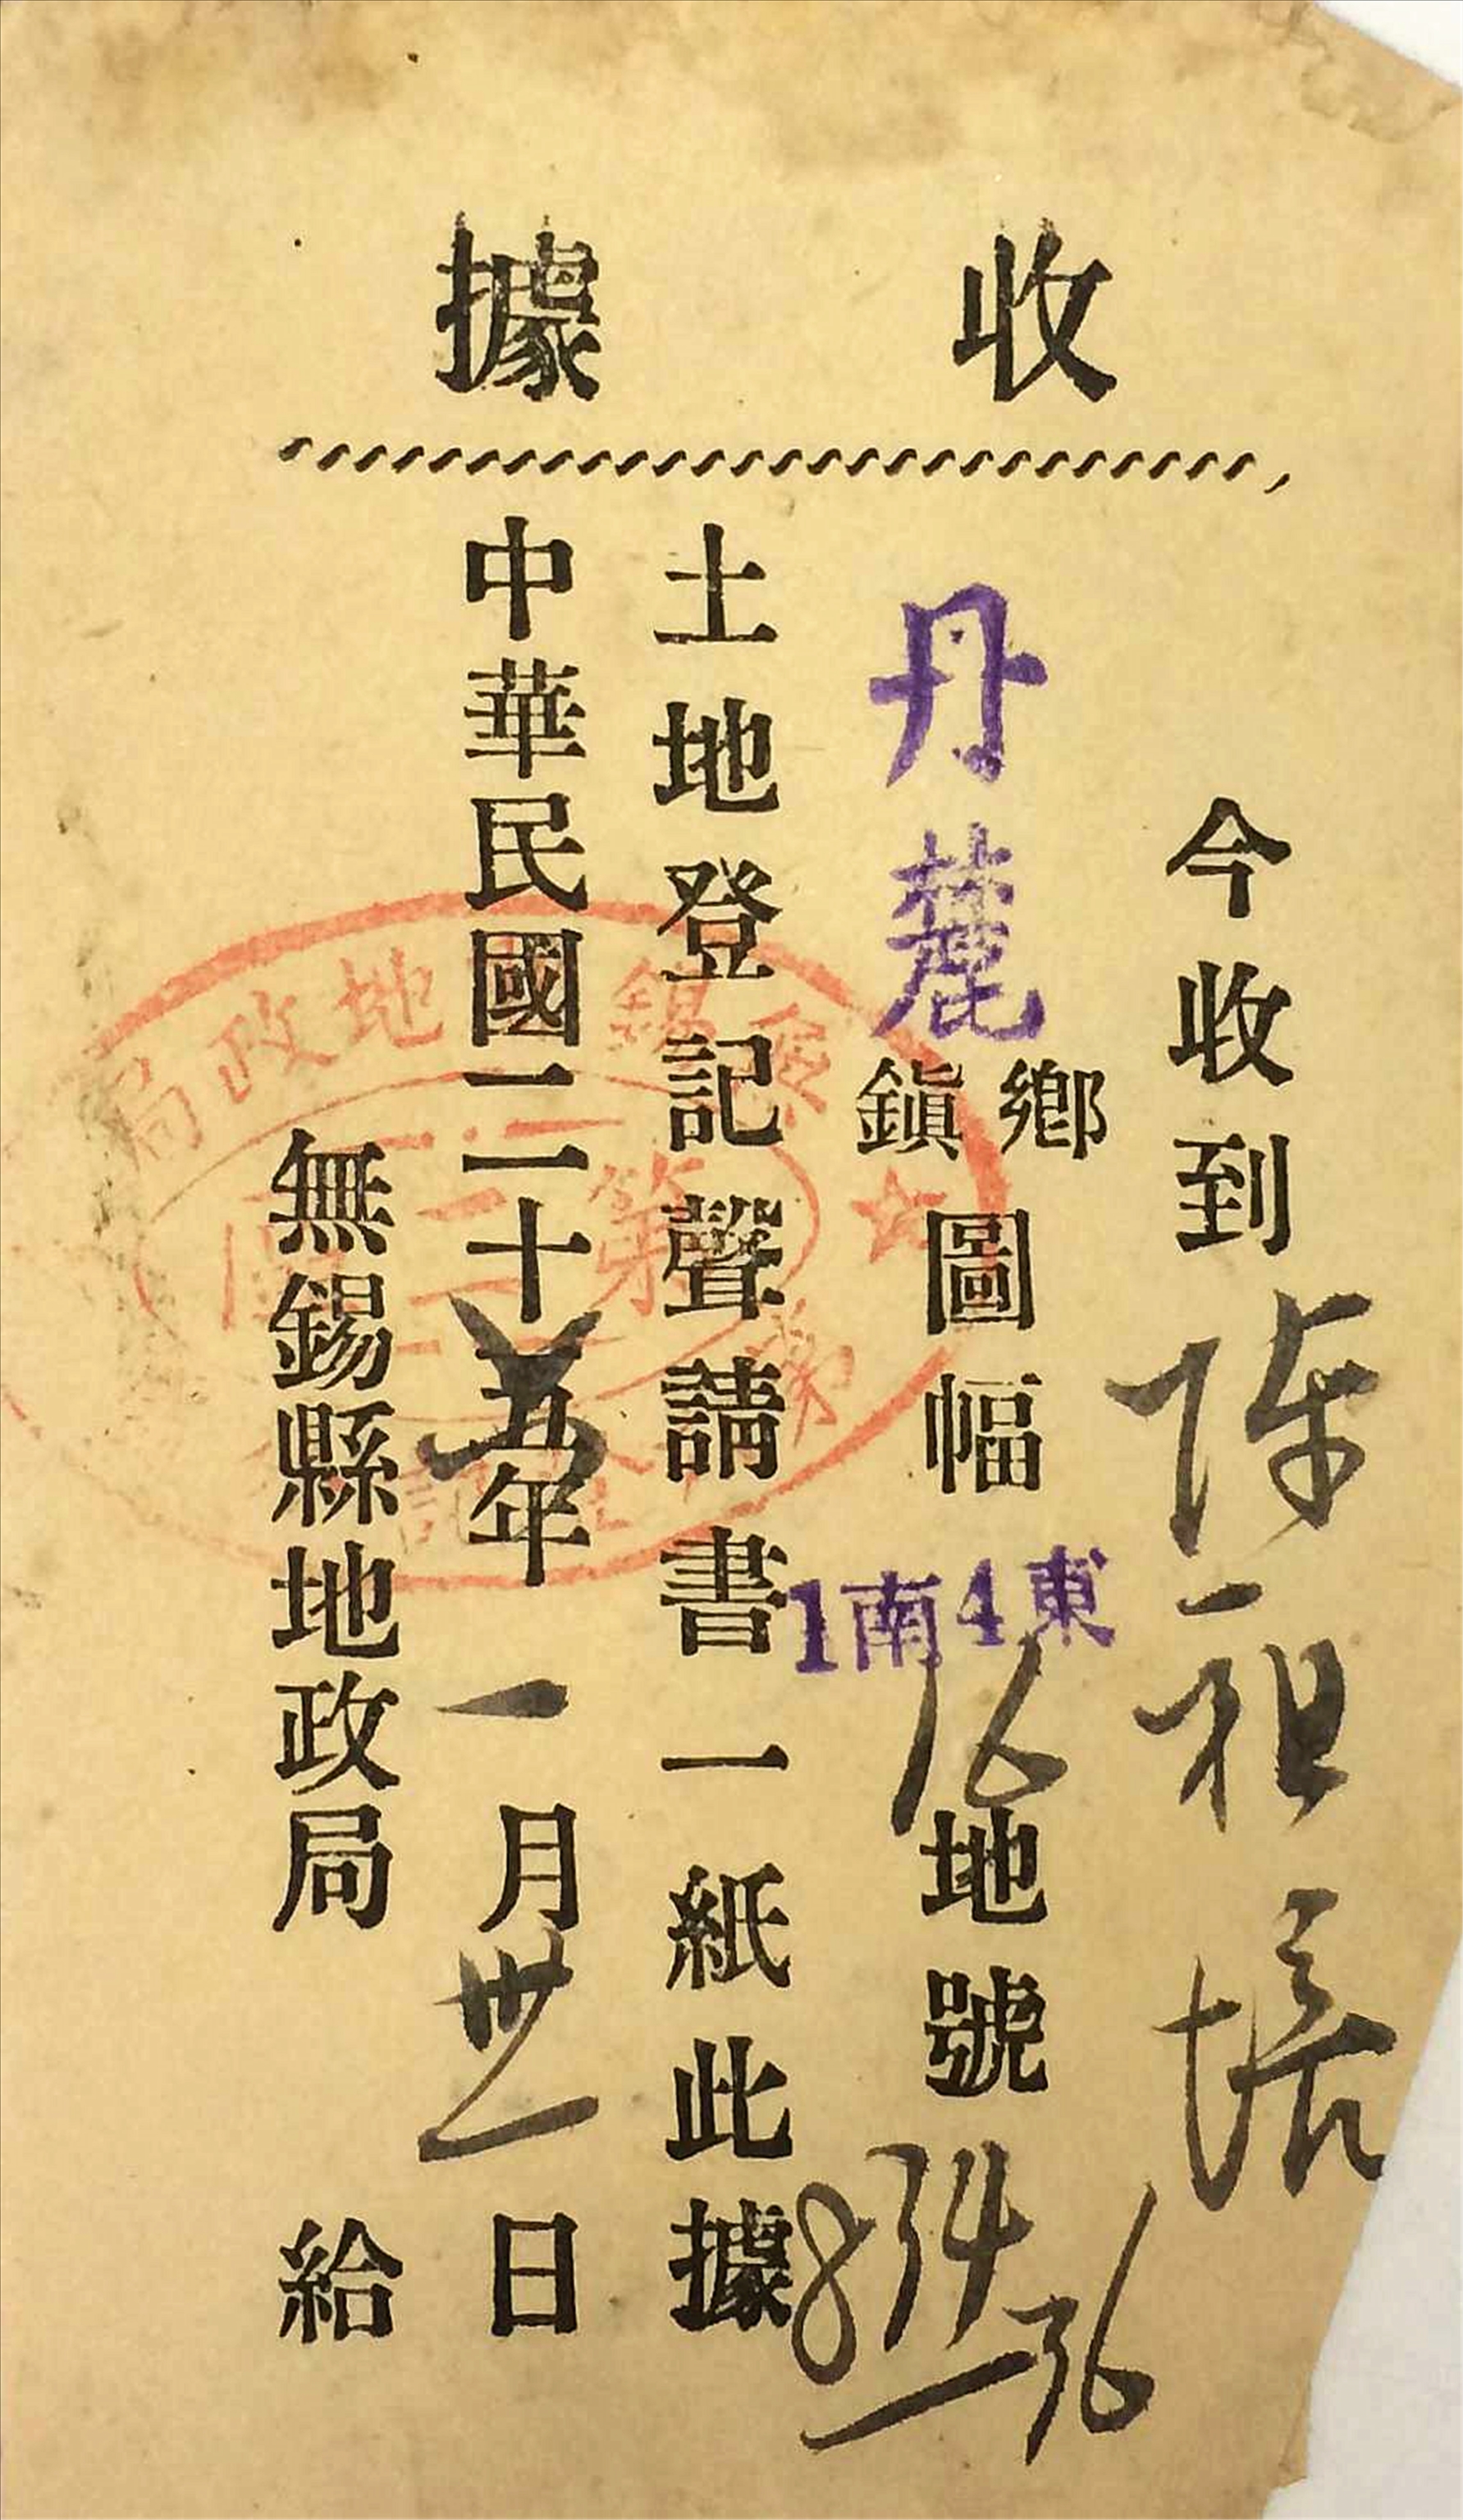 收據
今收到陳祖培
丹麓鄉鎮圖幅東4南1 16地號
土地登記聲請書一紙此據
中華民國二十五年一月卅一日
無錫縣地政局給
無錫地政局
第三